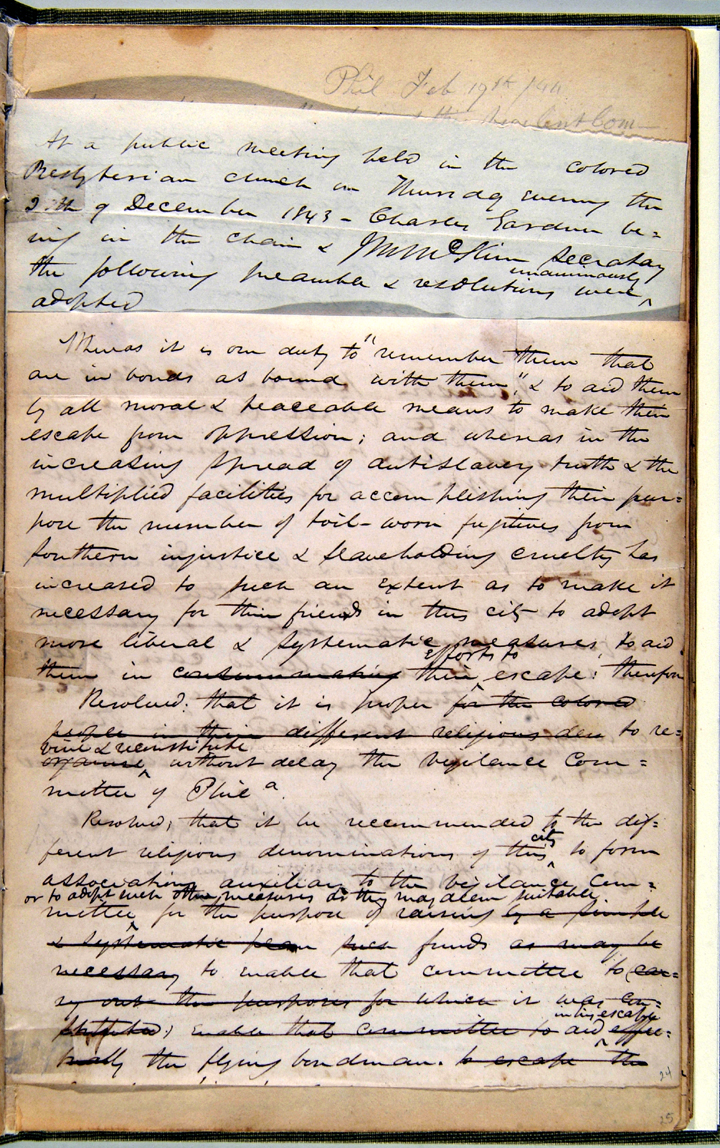 Phil Feb 19th 1844
Com—
At a public meeting held in the colored
Presbyterian church on Thursday evening the
of December 1843 – Charles Gardner be=
ing in the chair & J M McKim Secretary
unanimously
the following preamble & resolutions were ^
adopted
Whereas it is our duty to "remember them that
are in bonds as bound with them," & to aid them
by all moral & peaceable means to make their
escape from oppression; and whereas in the
increasing spread of antislavery truth & the
multiplied facilities for accomplishing their pur=
pose the number of toil-worn fugitives from
Southern injustice & slaveholding cruelty has
increased to such an extent as to make it
necessary for their friends in this city to adopt
more liberal & systematic measures to aid
efforts to
them in consummating their ^ escape: therefore
Resolved: that it is proper for the colored
people in their different religious den to re=
vive & reconstitute
organize ^ without delay the Vigilance Com=
mittee of Phila.
Resolved, that it be recommended to the dif=
city
ferent religious denominations of this ^ to form
associations auxiliary to the Vigilance Com=
or to adopt such other measures as they may deem suitable
mittee ^ for the purpose of raising by a simple
& systematic plan such funds as may be
necessary to enable that committee to car=
ry out the purposes for which it was con=
in his escape
stituted; enable that committee to aid ^ effec=
tually the flying bondman. to escape the
24
25